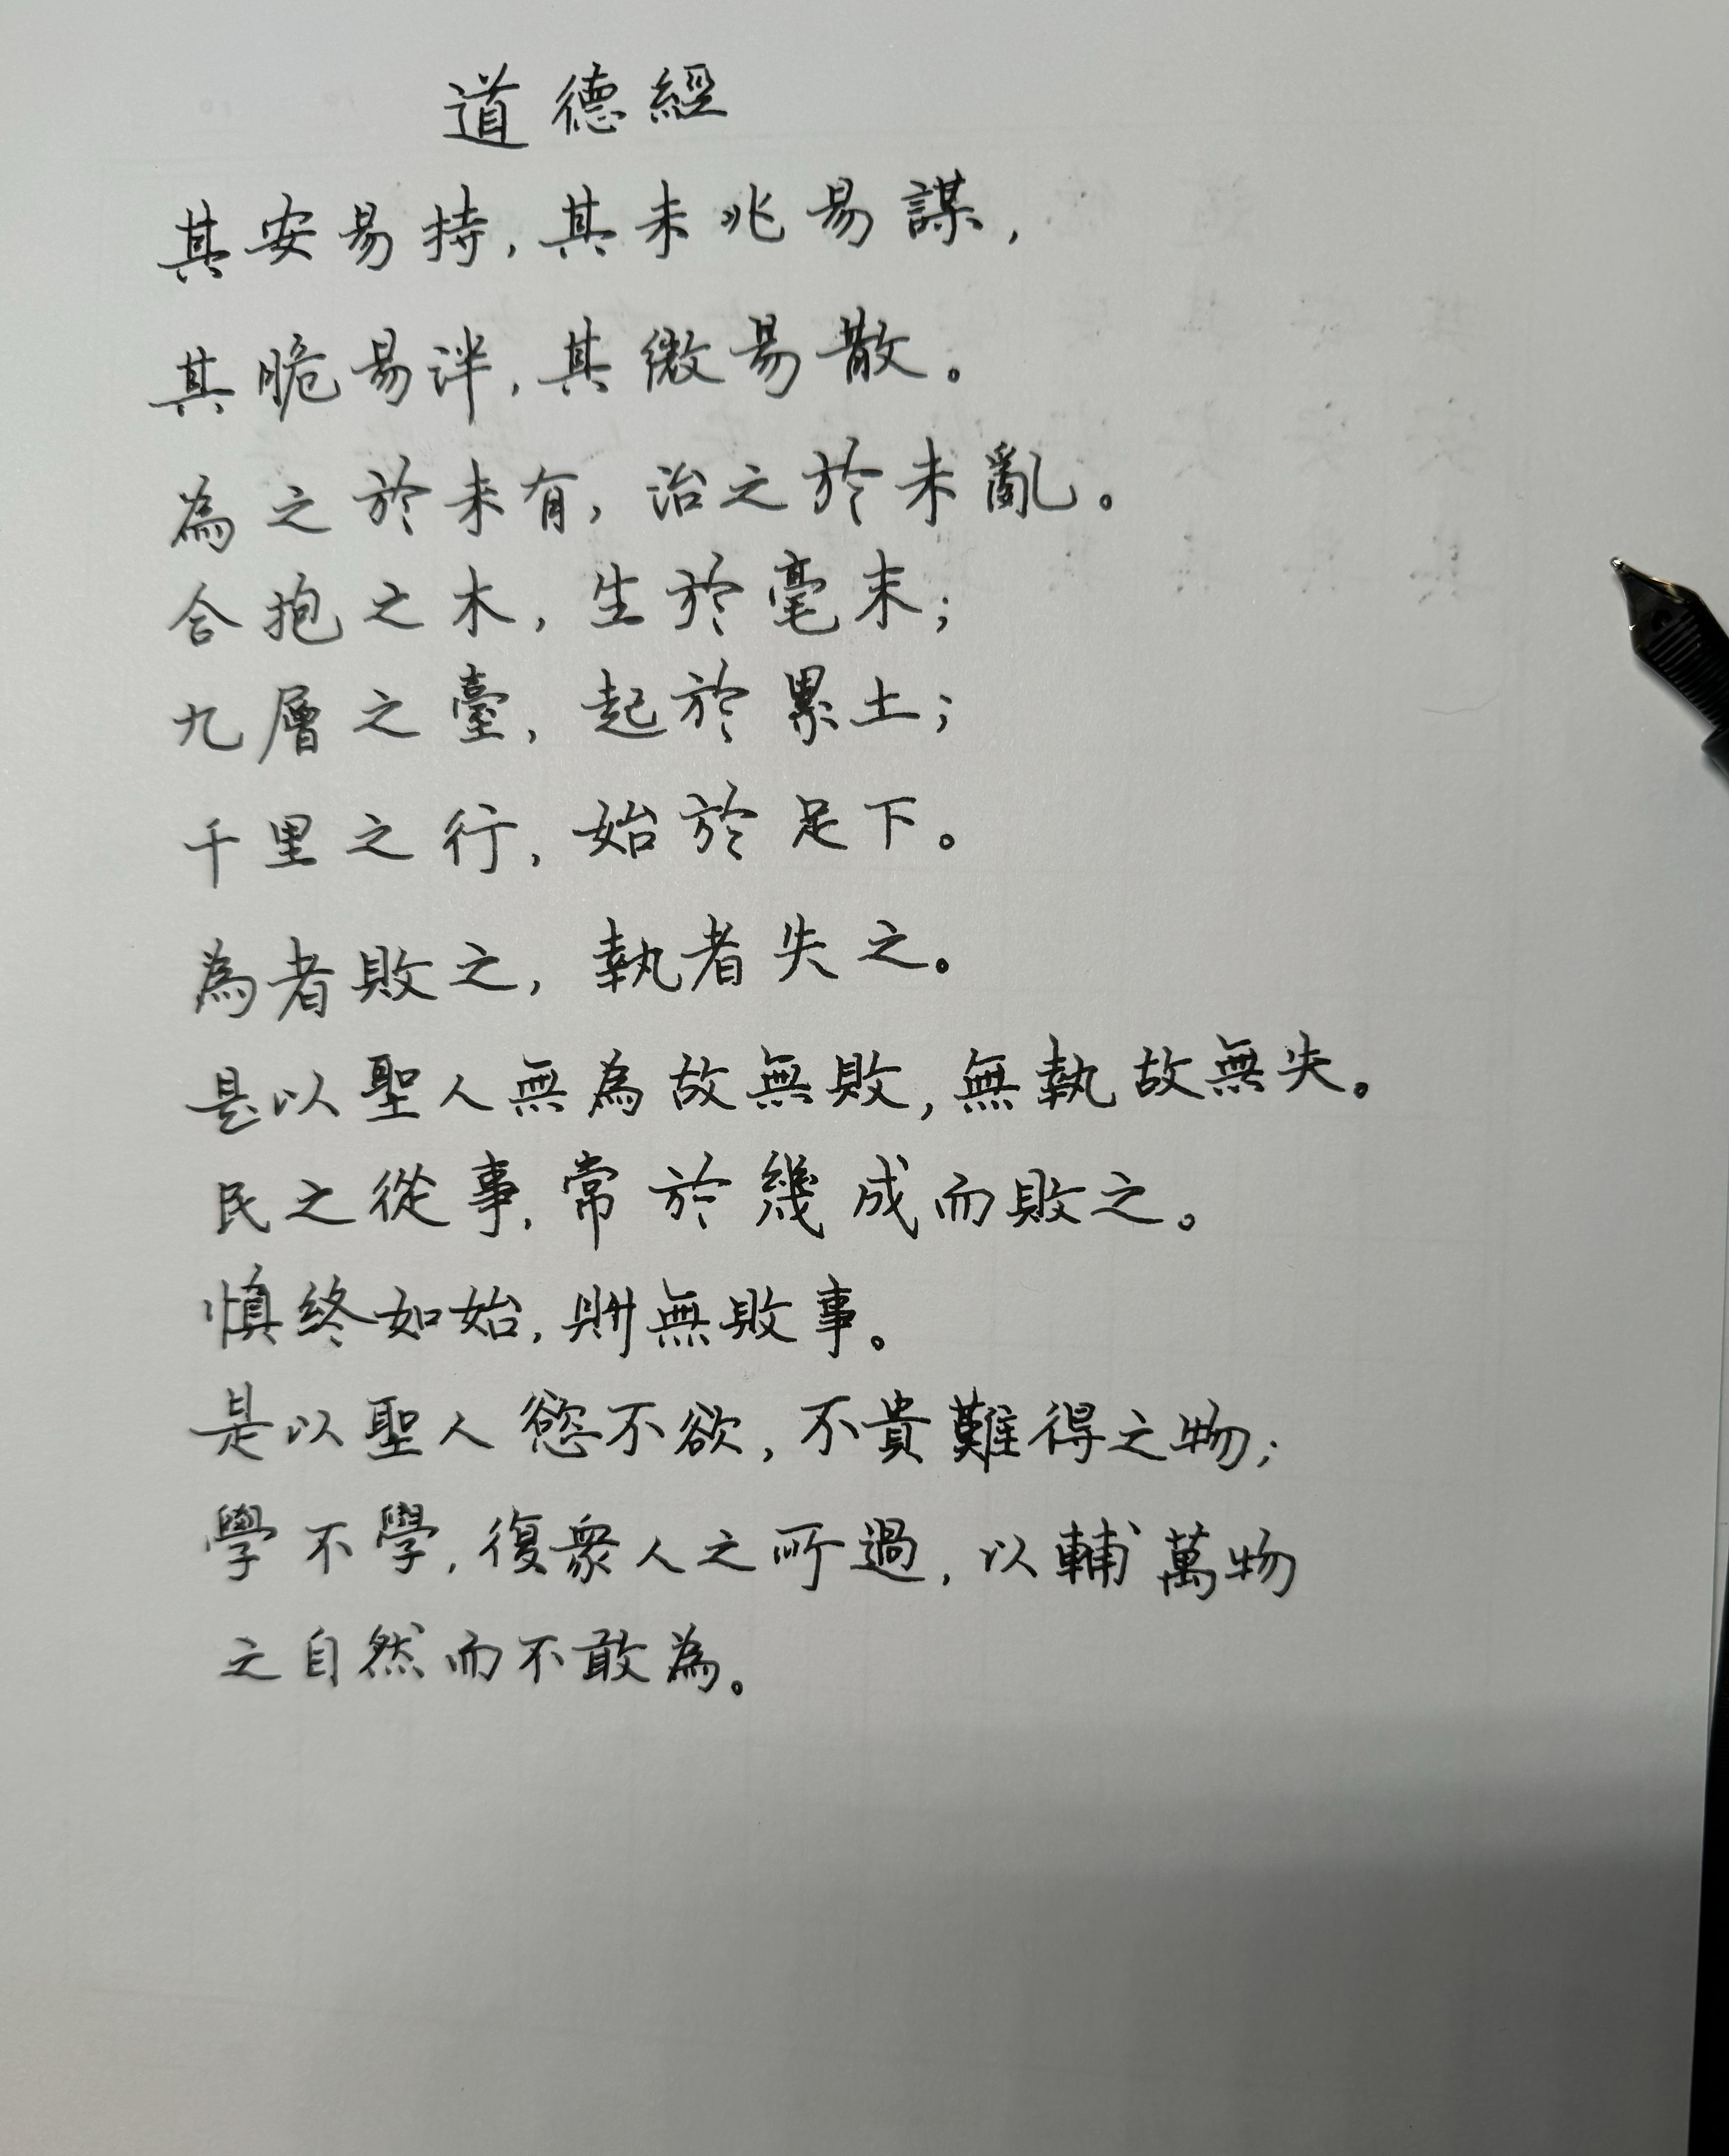 道德經
其安易持,其未兆易謀,
其脆易泮,其微易散。
為之於未有,治之於未亂。
合抱之木,生於毫末;
九層之臺,起於累土;
千里之行,始於足下。
為者敗之,執者失之。
是以聖人無為故無敗,無執故無失。
民之從事,常於幾成而敗之。
慎終如始,則無敗事。
是以聖人慾不欲,不貴難得之物;
學不學,復眾人之所過,以輔萬物
之自然而不敢為。